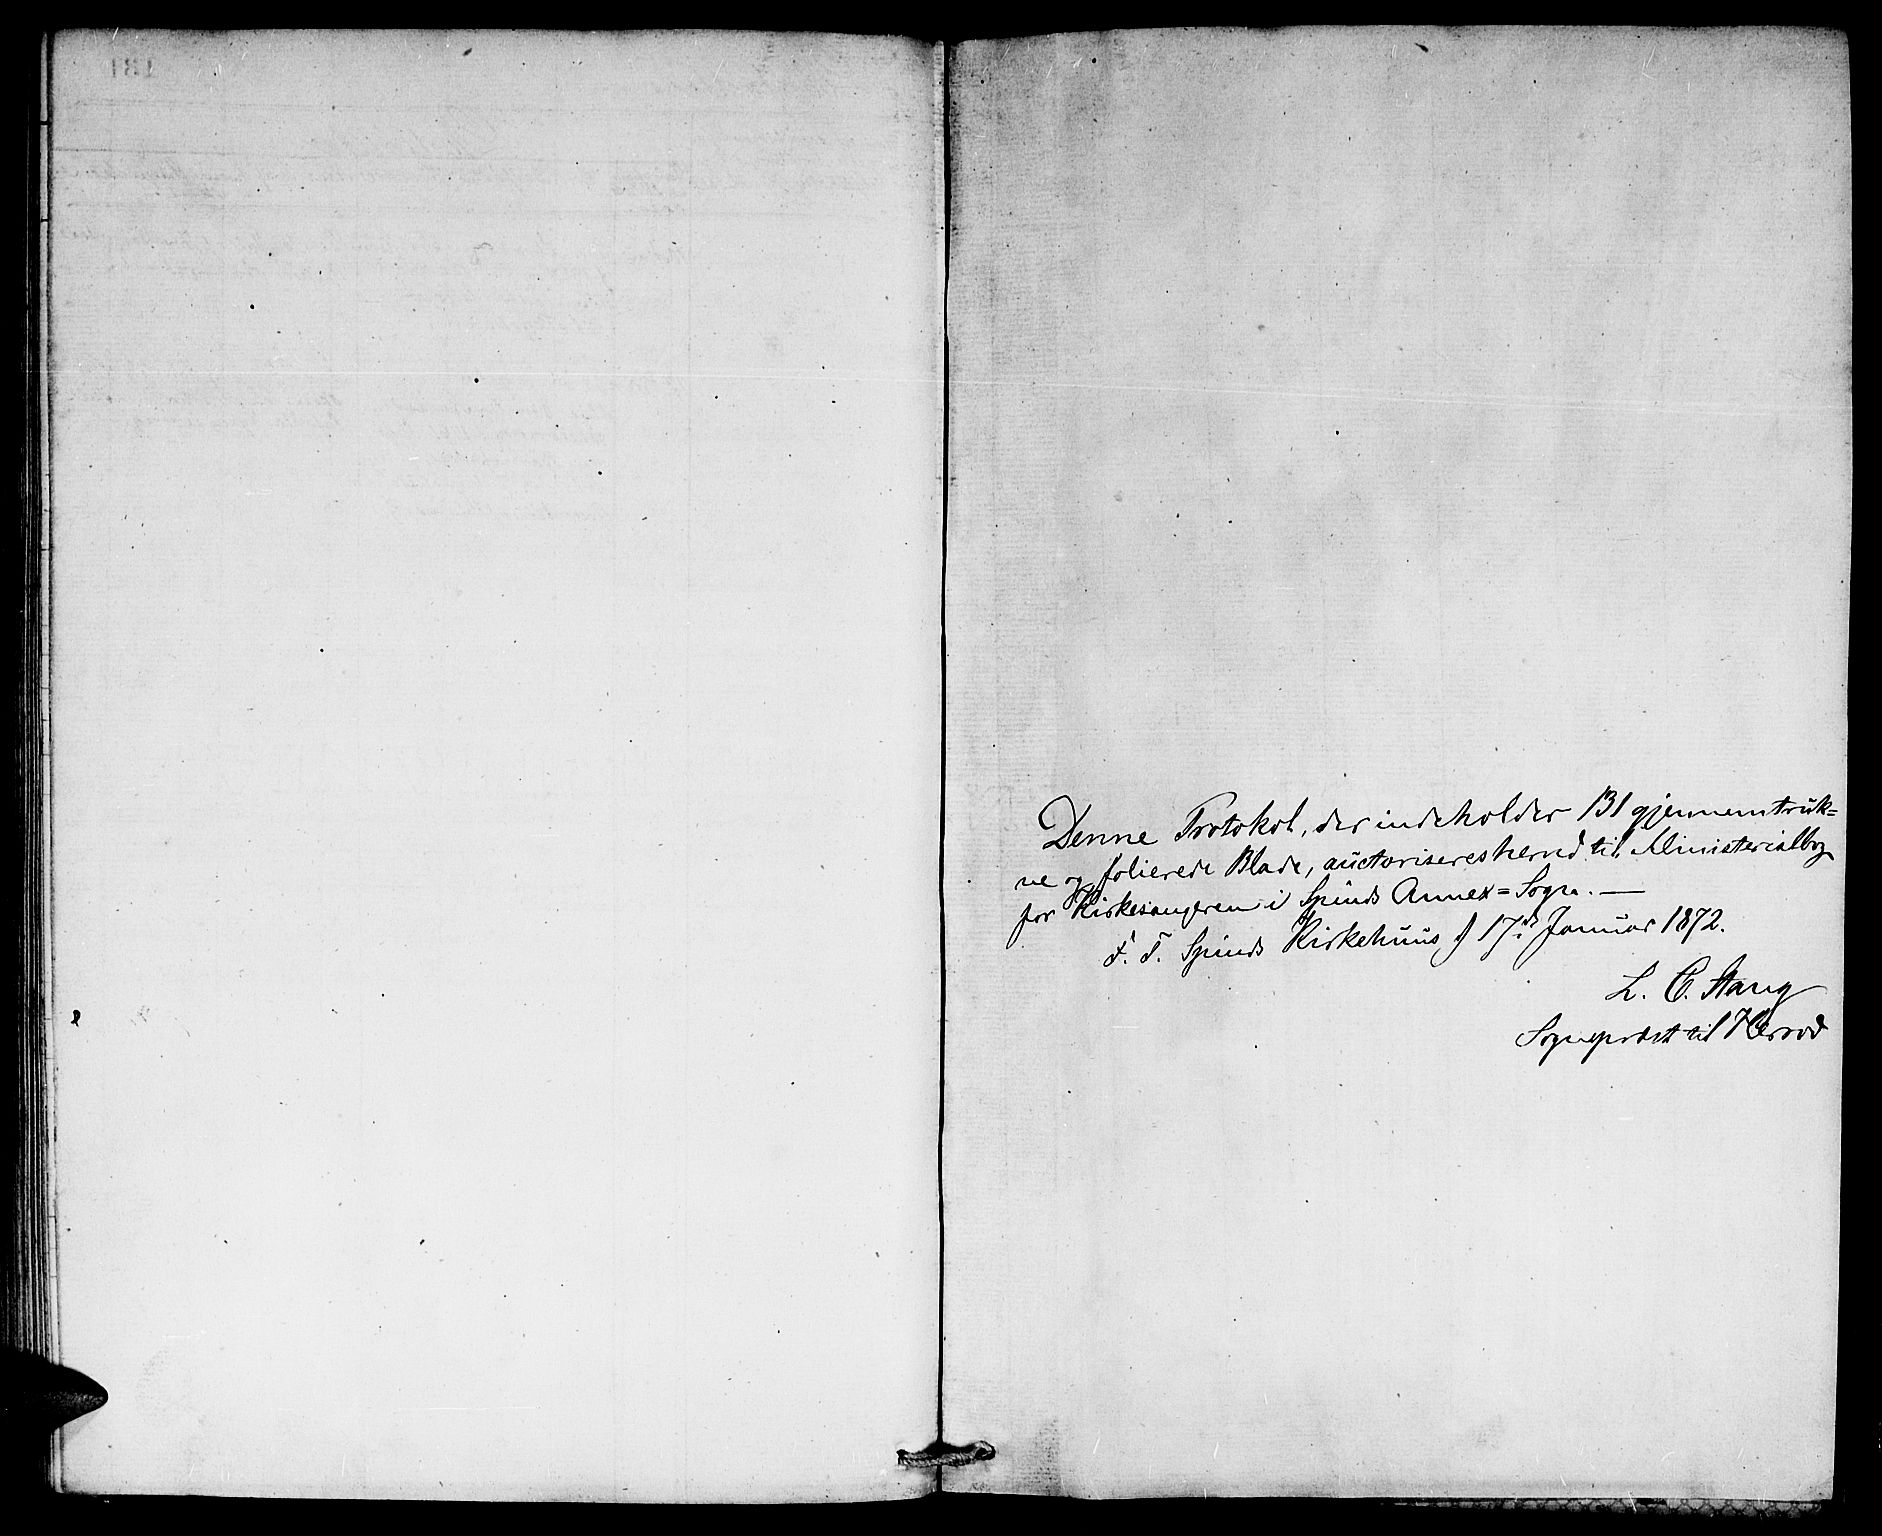 131
Denne Protokol, der indeholder 131 gjennemtruk=
ne og folierede Blade, auctoriseres herved til Ministerialbog
for Kirkesangeren i Spinds Annex=Sogn. —
F. T. Spinds Kirkehuus, 17de Januar 1872.
L. C. Stang
Sogneprest til Herred